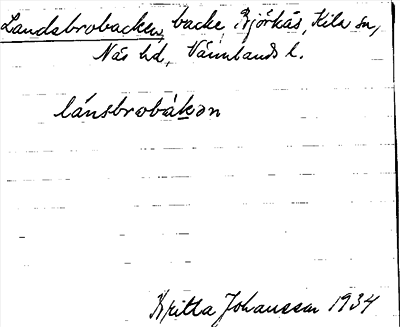 Landsbrobacken, backe, Björkås, Kila sn,
Näs hd, Värmlands l.
lánsbrobàkən
Britta Johansson 1934